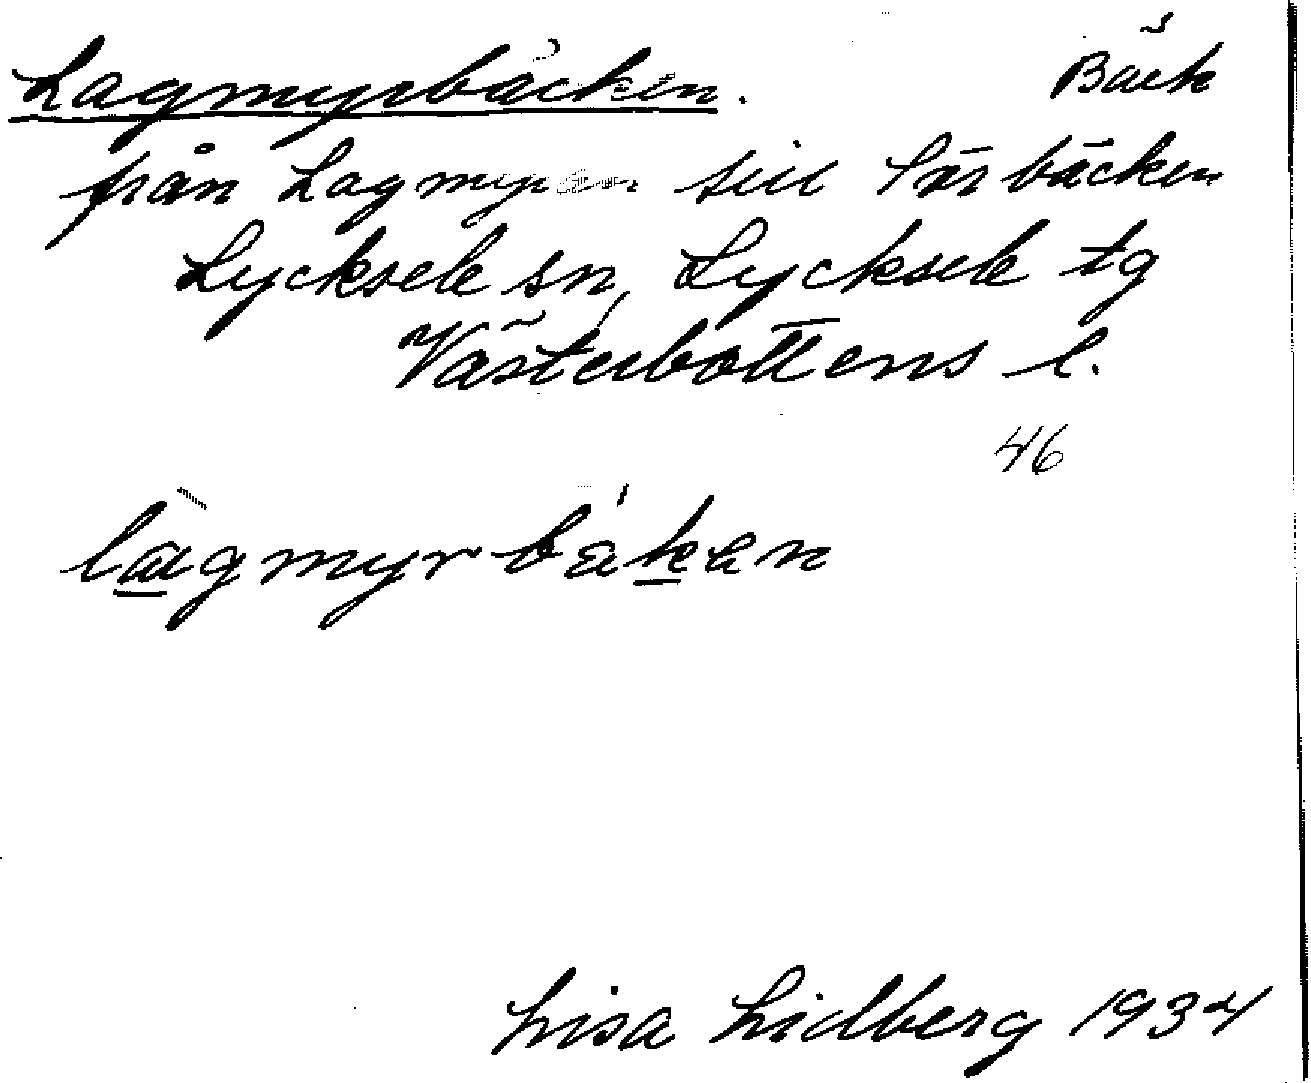 Lagmyrbäcken. Bäck
från Lagmyren till Lärbäcken
Lycksele sn, Lycksele tg
Västerbottens l.
46
làgmyrbäken
Lisa Lidberg 1934